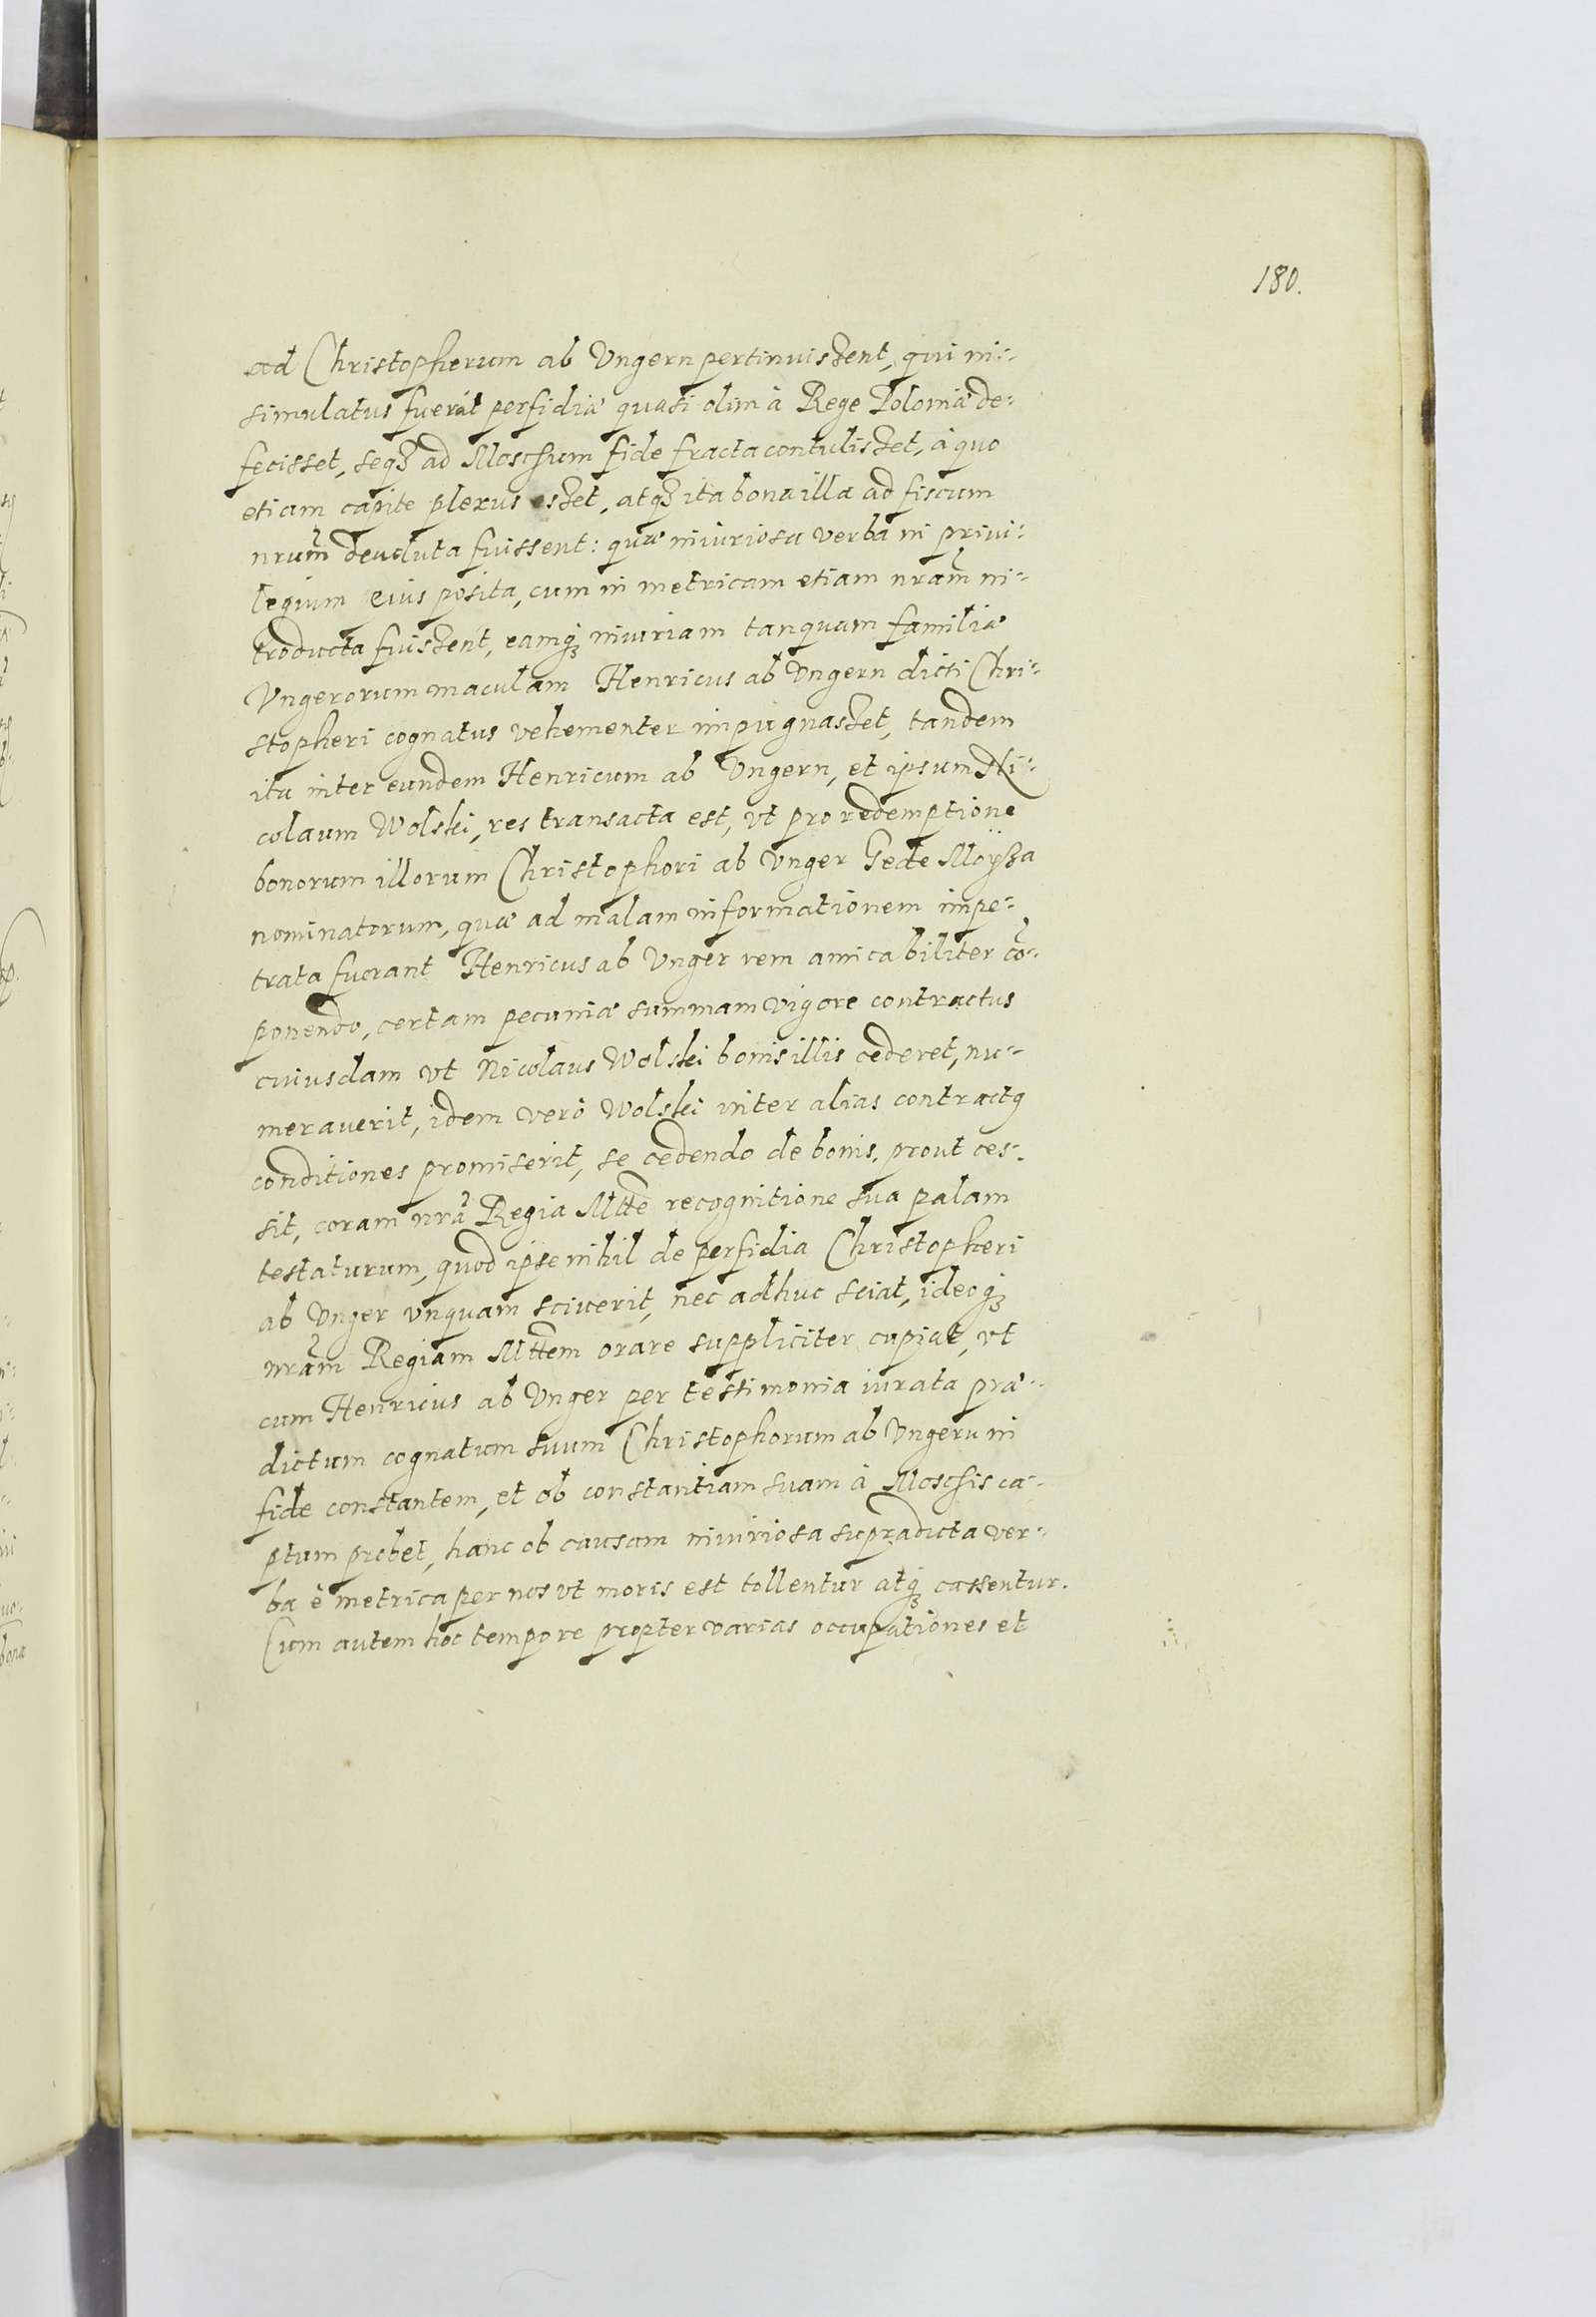 180.
ad Christopherum ab Ungern pertinuissent, qui in-
simulatus fuerat perfidiæ quasi olim à Rege Poloniæ de-
fecisset, seqꝫ ad Moschum fide fracta contulisset, à quo
etiam capite plexus esset, atqꝫ ita bona illa ad fiscum
nrum̃ deuoluta fuissent: quæ iniuriosa verba in priui-
legium eius posita, cum in metricam etiam nram̃ in-
troducta fuissent, eamqꝫ iniuriam tanquam familiæ
Vngerorum maculam Henricus ab Ungern dicti Chri-
stopheri cognatus vehementer impugnasset, tandem
ita inter eundem Henricum ab Ungern, et ipsum Ni-
colaum Wolski, res transacta est, vt pro redemptione
bonorum illorum Christophori ab Unger Gede Moÿza
nominatorum, quæ ad malam informationem impe-
trata fuerant Henricus ab Unger rem amicabiliter cõ-
ponendo, certam pecuniæ summam vigore contractus
cuiusdam vt Nicolaus Wolski bonis illis cederet, nu-
merauerit, idem verò Wolski inter alias contractꝰ
conditiones promiserit, se cedendo de bonis, prout ces-
sit, coram nrã Regia Mtte recognitione sua palam
testaturum, quod ipse nihil de perfidia Christopheri
ab Unger vnquam sciuerit, nec adhuc sciat, ideoqꝫ
nram̃ Regiam Mttem orare suppliciter cupiat, vt
cum Henricus ab Unger per testimonia iurata præ-
dictum cognatum suum Christophorum ab Ungern in
fide constantem, et ob constantiam suam à Moschis ca-
ptum probet, hanc ob causam iniuriosa supradicta ver-
ba è metrica per nos vt moris est tollentur atqꝫ cassentur.
Cum autem hoc tempore propter varias occupationes et